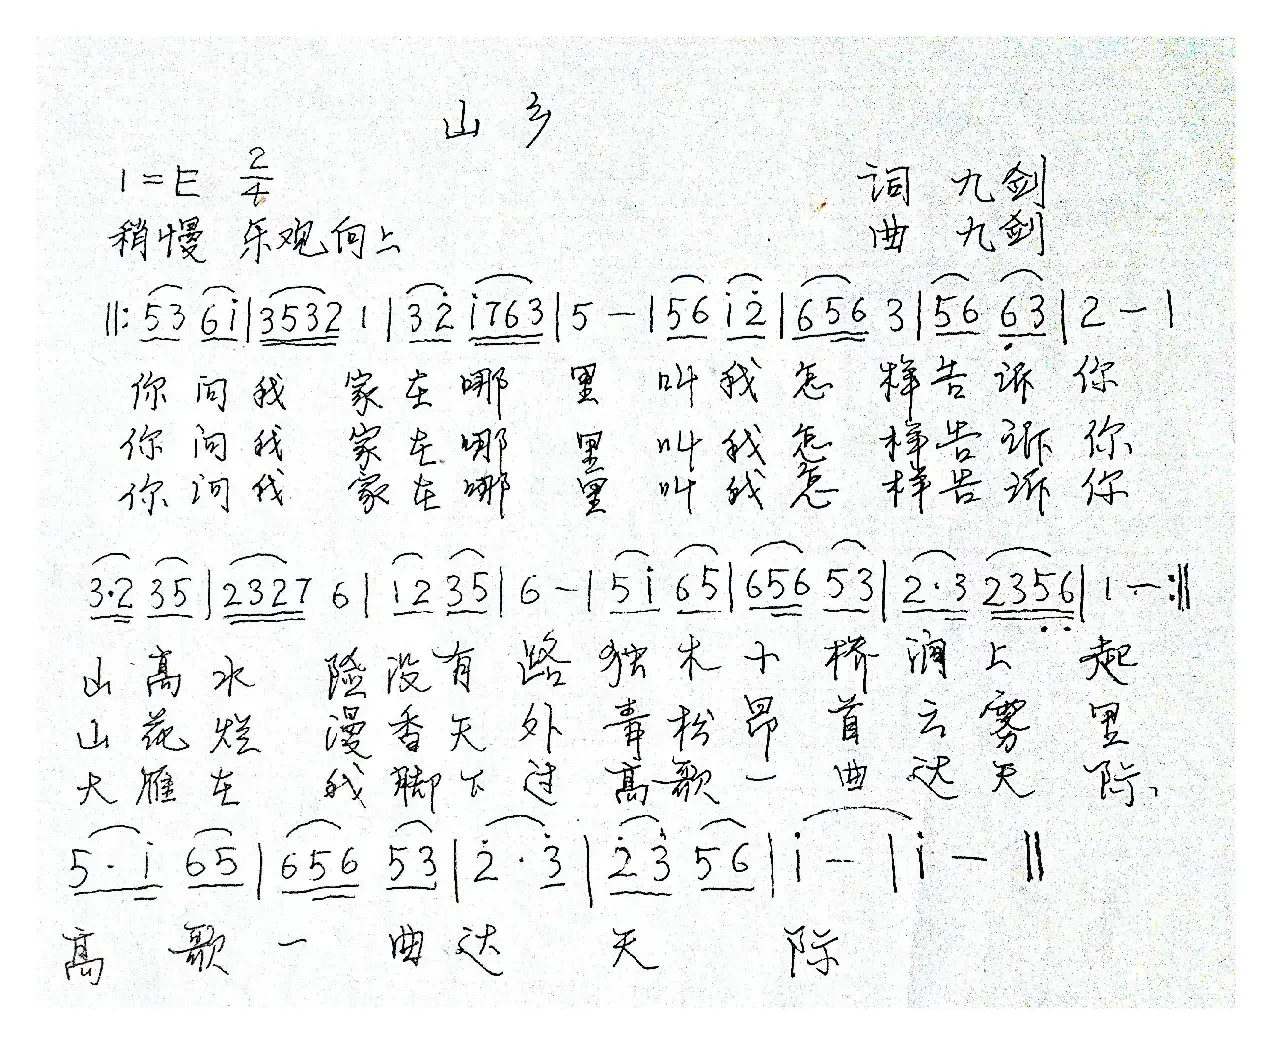 山乡
1=E 2/4
词 九剑
稍慢 乐观向上
曲 九剑
‖: 53 6i | 3532 1 | 32̇ i763 | 5 — | 56 i2̇ | 656 3 | 56 6̣3 | 2 — |
你问我 家在哪 里 叫我怎 样告诉 你
你问我 家在哪 里 叫我怎 样告诉 你
你问我 家在哪 里 叫我怎 样告诉 你
3·2 35 | 2327 6 | 12 35 | 6 — | 5i 65 | 656 53 | 2·3 235̣6̣ | 1 — :‖
山高水 险没有 路 独木小 桥涧上 起
山花烂 漫香天 外 青松昂 首云雾 里
大雁在 我脚下 过 高歌一 曲达天 际、
5·i 65 | 656 53 | 2̇·3̇ | 2̇3̇ 56 | i — | i — ‖
高 歌 一 曲 达 天 际